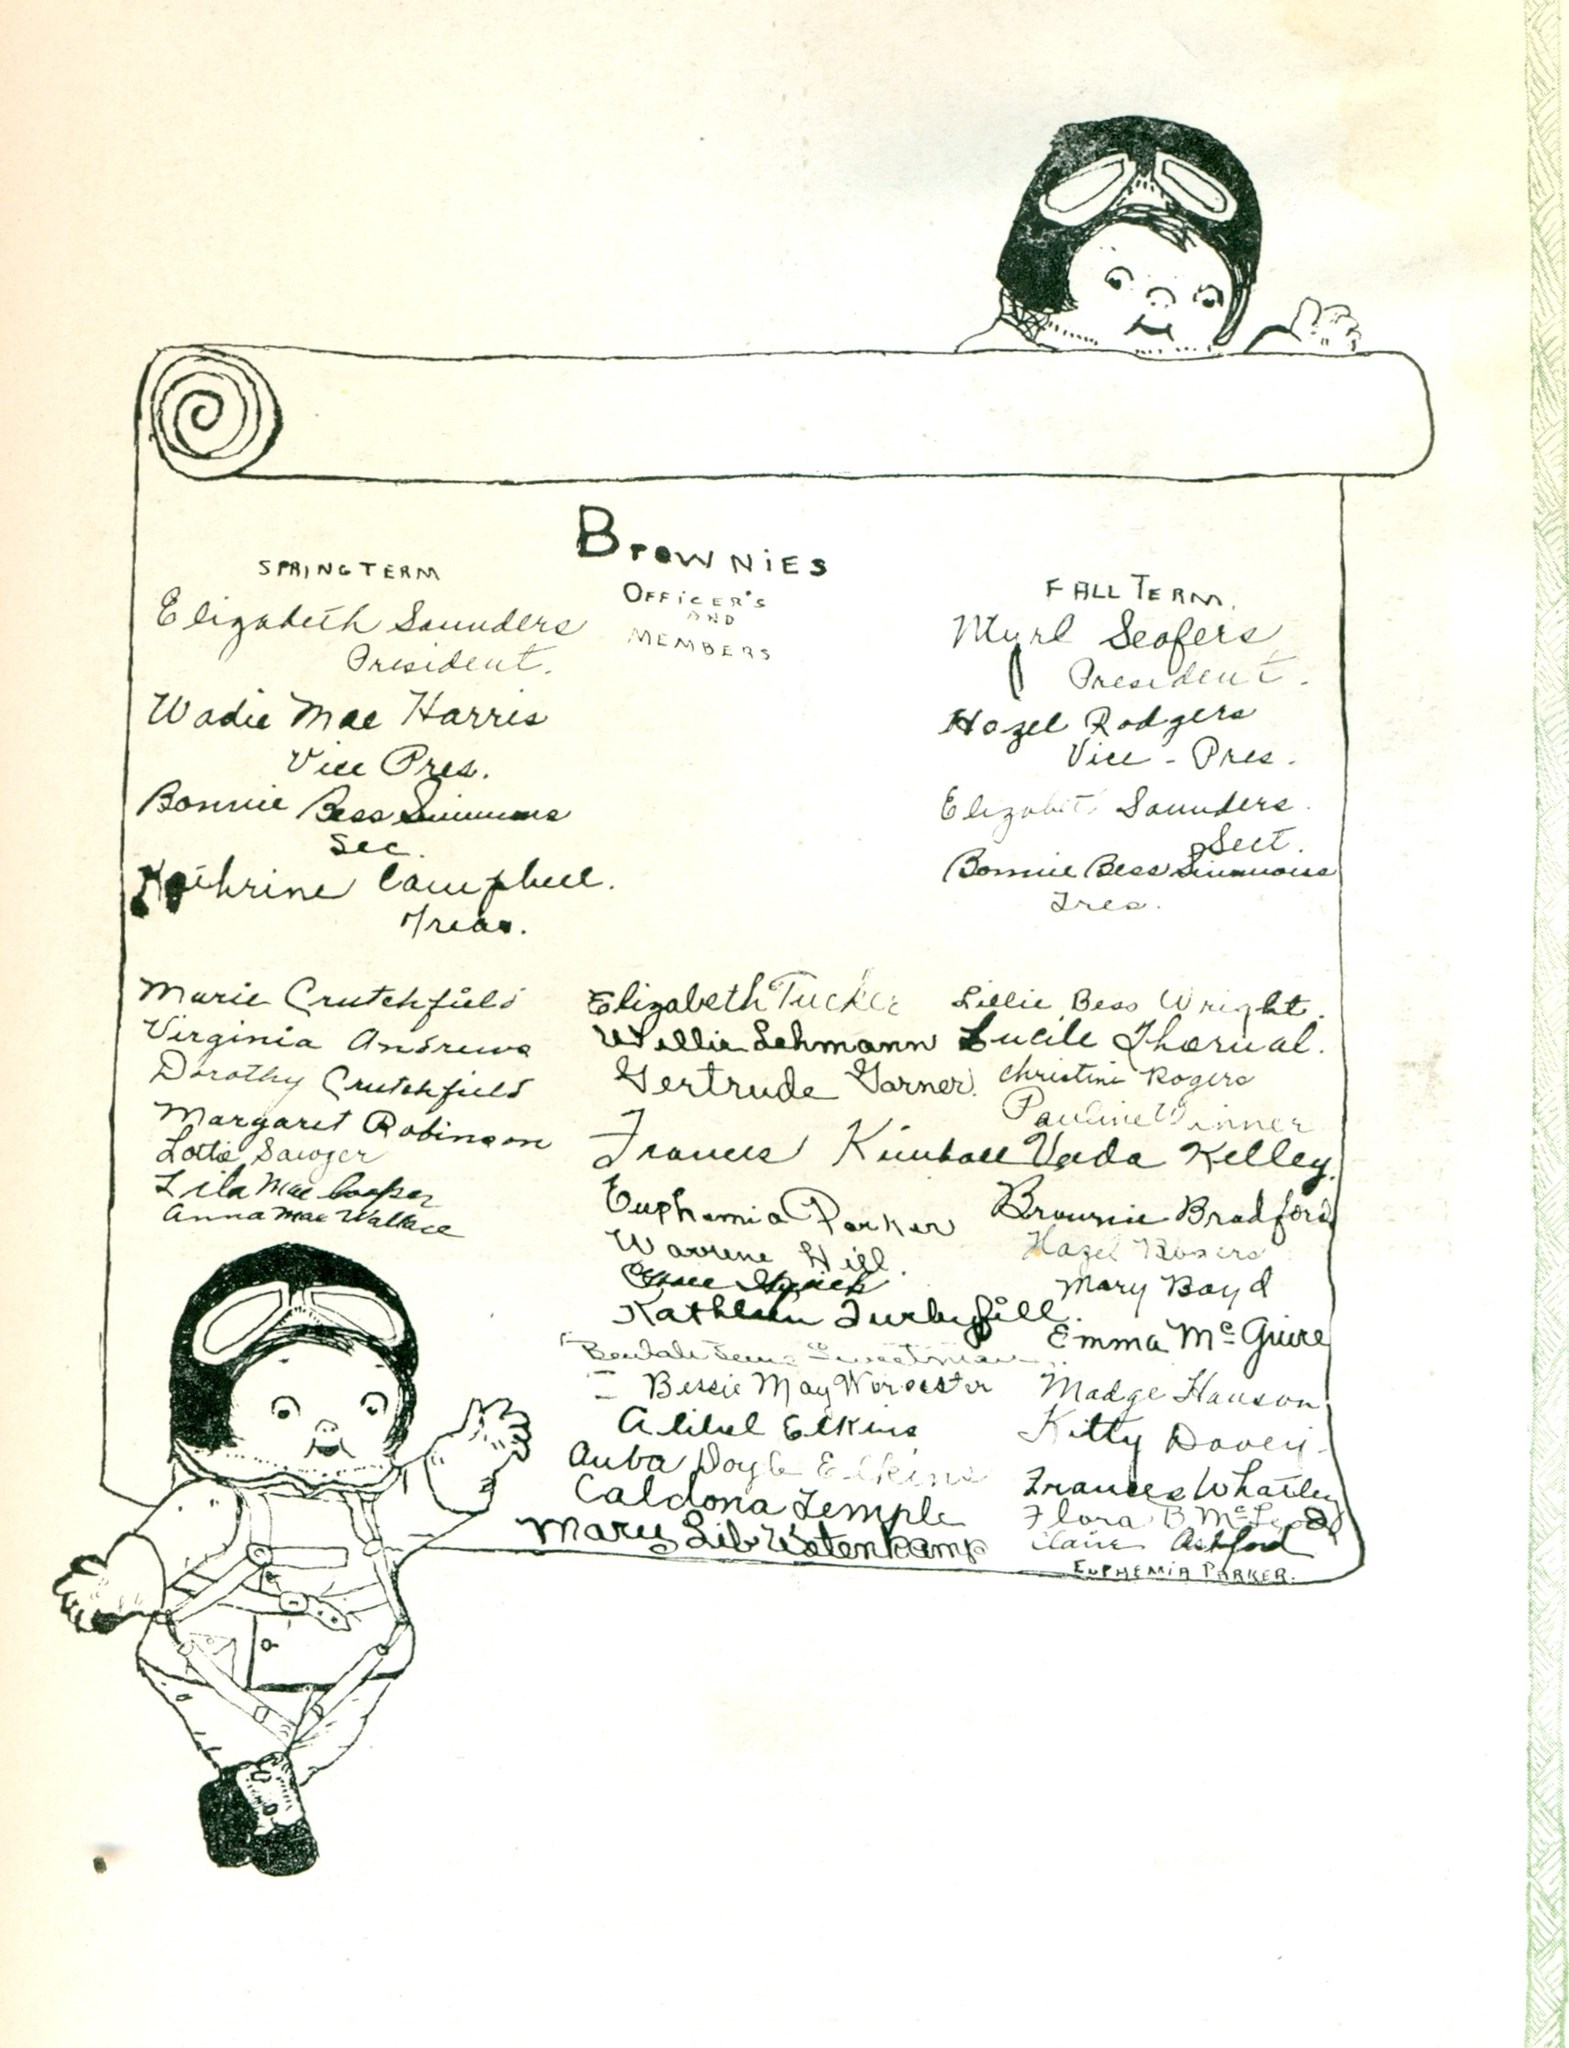 Brownies
Officer's
and
Members
Spring Term
Elizabeth Saunders
President.
Wadie Mae Harris
Vice Pres.
Bonnie Bess Simmons
Sec.
Kathrine Campbell.
Treas.
Fall Term.
Myrl Seofers
President.
Hazel Rodgers
Vice - Pres.
Elizabeth Saunders.
Sect.
Bonnie Bess Simmons
Tres.
Marie Crutchfield
Virginia Andrews
Dorothy Crutchfield
Margaret Robinson
Lottie Sawyer
Lila Mae Cooper
Anna Mae Wallace
Elizabeth Tucker
Willie Lehmann
Gertrude Garner.
Frances Kimball
Euphemia Parker
Warrene Hill.
Grace
Kathleen Turbyfill.
Beulah
Bessie May Worcester
Elkins
Auba Doyle Elkins
Caldona Temple
Mary Lib Watenkamp
Lillie Bess Wright.
Lucile Thornal.
Christine Rogers
Pauline Winner
Veda Kelley.
Brownie Bradford
Hazel
Mary Boyd
Emma McGuire
Madge Hanson
Kitty Davey
Frances Whatley
Flora B. McLeod
Claire Ashford
Euphemia Parker.